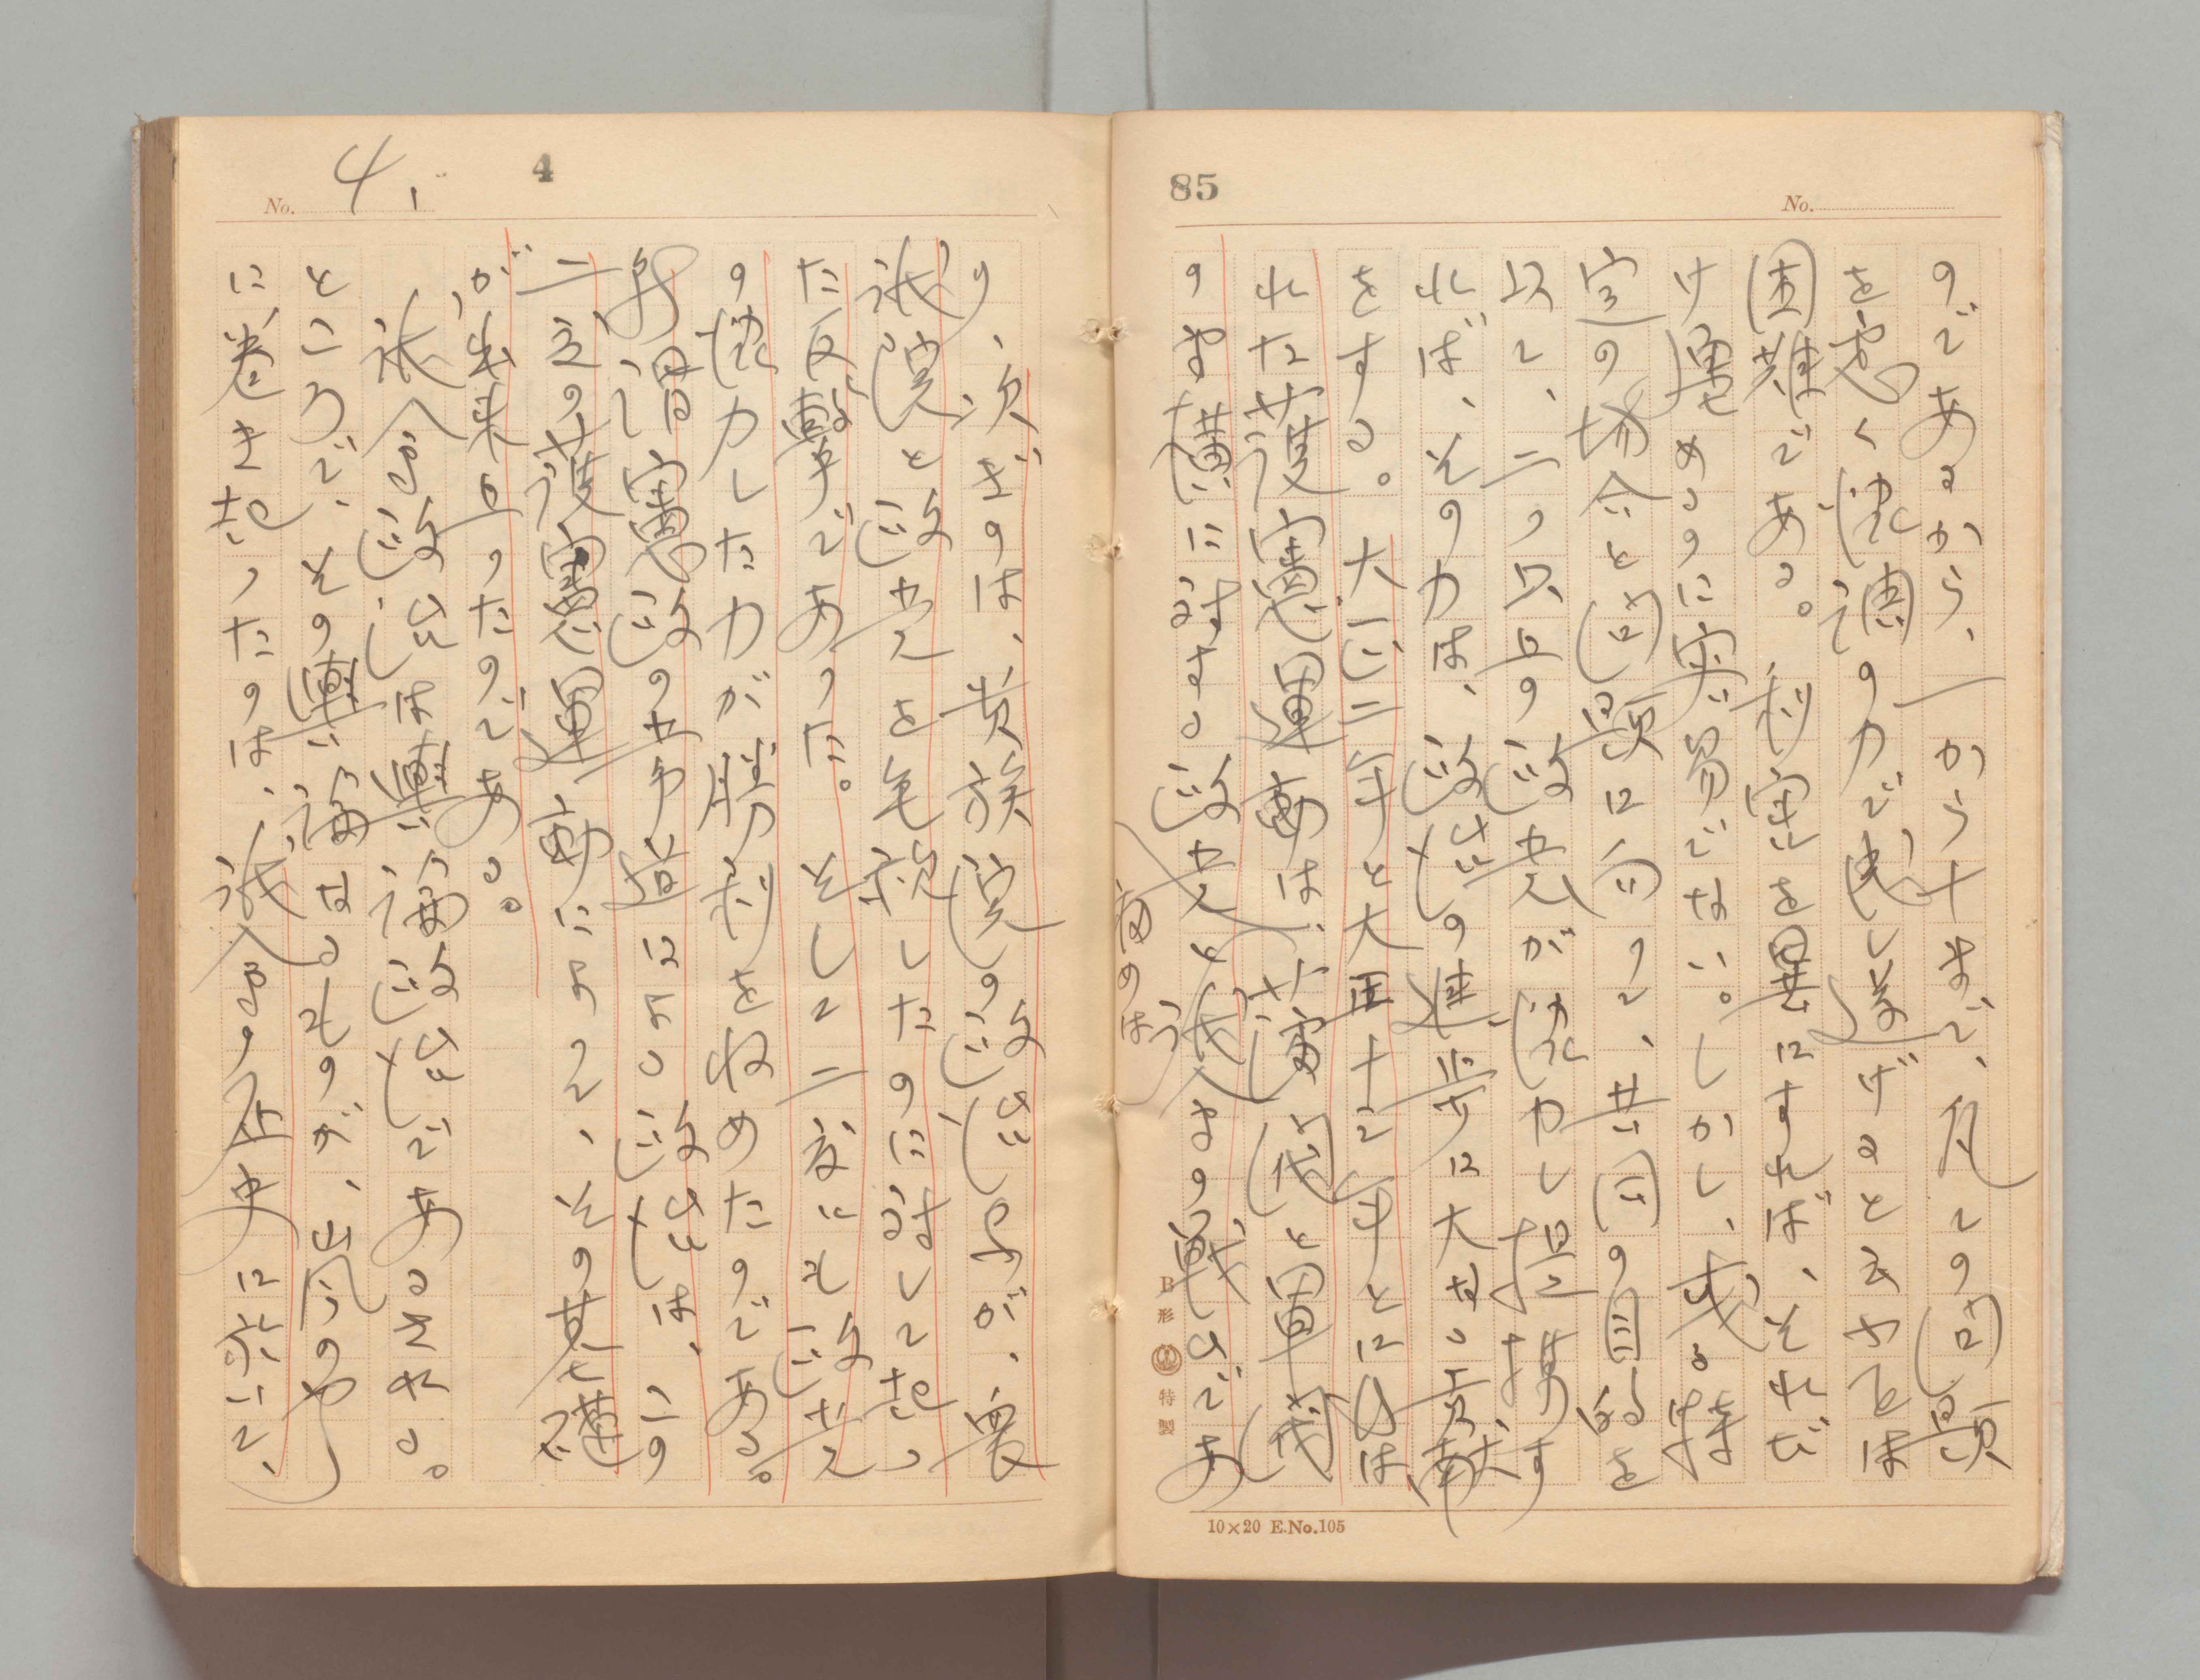 85
No.
のであるから、一から十まで、凡ての問題
を悉く協調の力で成し遂げると云ふことは
困難である。利害を異にすれば、それだ
け纏めるのに容易でない。しかし、或る特
定の場合と問題に向つて、共同の目的を
以て、二つ以上の政党が協力し提携す
れば、その力は、政治の進歩に大なる貢献
をする。大正二年と大正十三年とに現は
れた護憲運動は、藩閥と軍閥
のま横に対する政党と代人まの戦ひであ
夜のはう
B形 特製
10×20 E.No.105
4
No. 4、
り、次ぎのは、貴族院の政治しふが、衆
議院と政党を無視したのに対して起つ
た反撃であつた。そして二度にも政党
の協力した力が勝利をおさめたのである。
所謂憲政の常道による政治は、この
二立の護憲運動によつて、その基礎
が出来上つたのである。
議会政治は輿論政治であるされる。
ところで、その輿論なるものが、出気のやう
に、巻き起つたのは、議会の歴史に於いて、